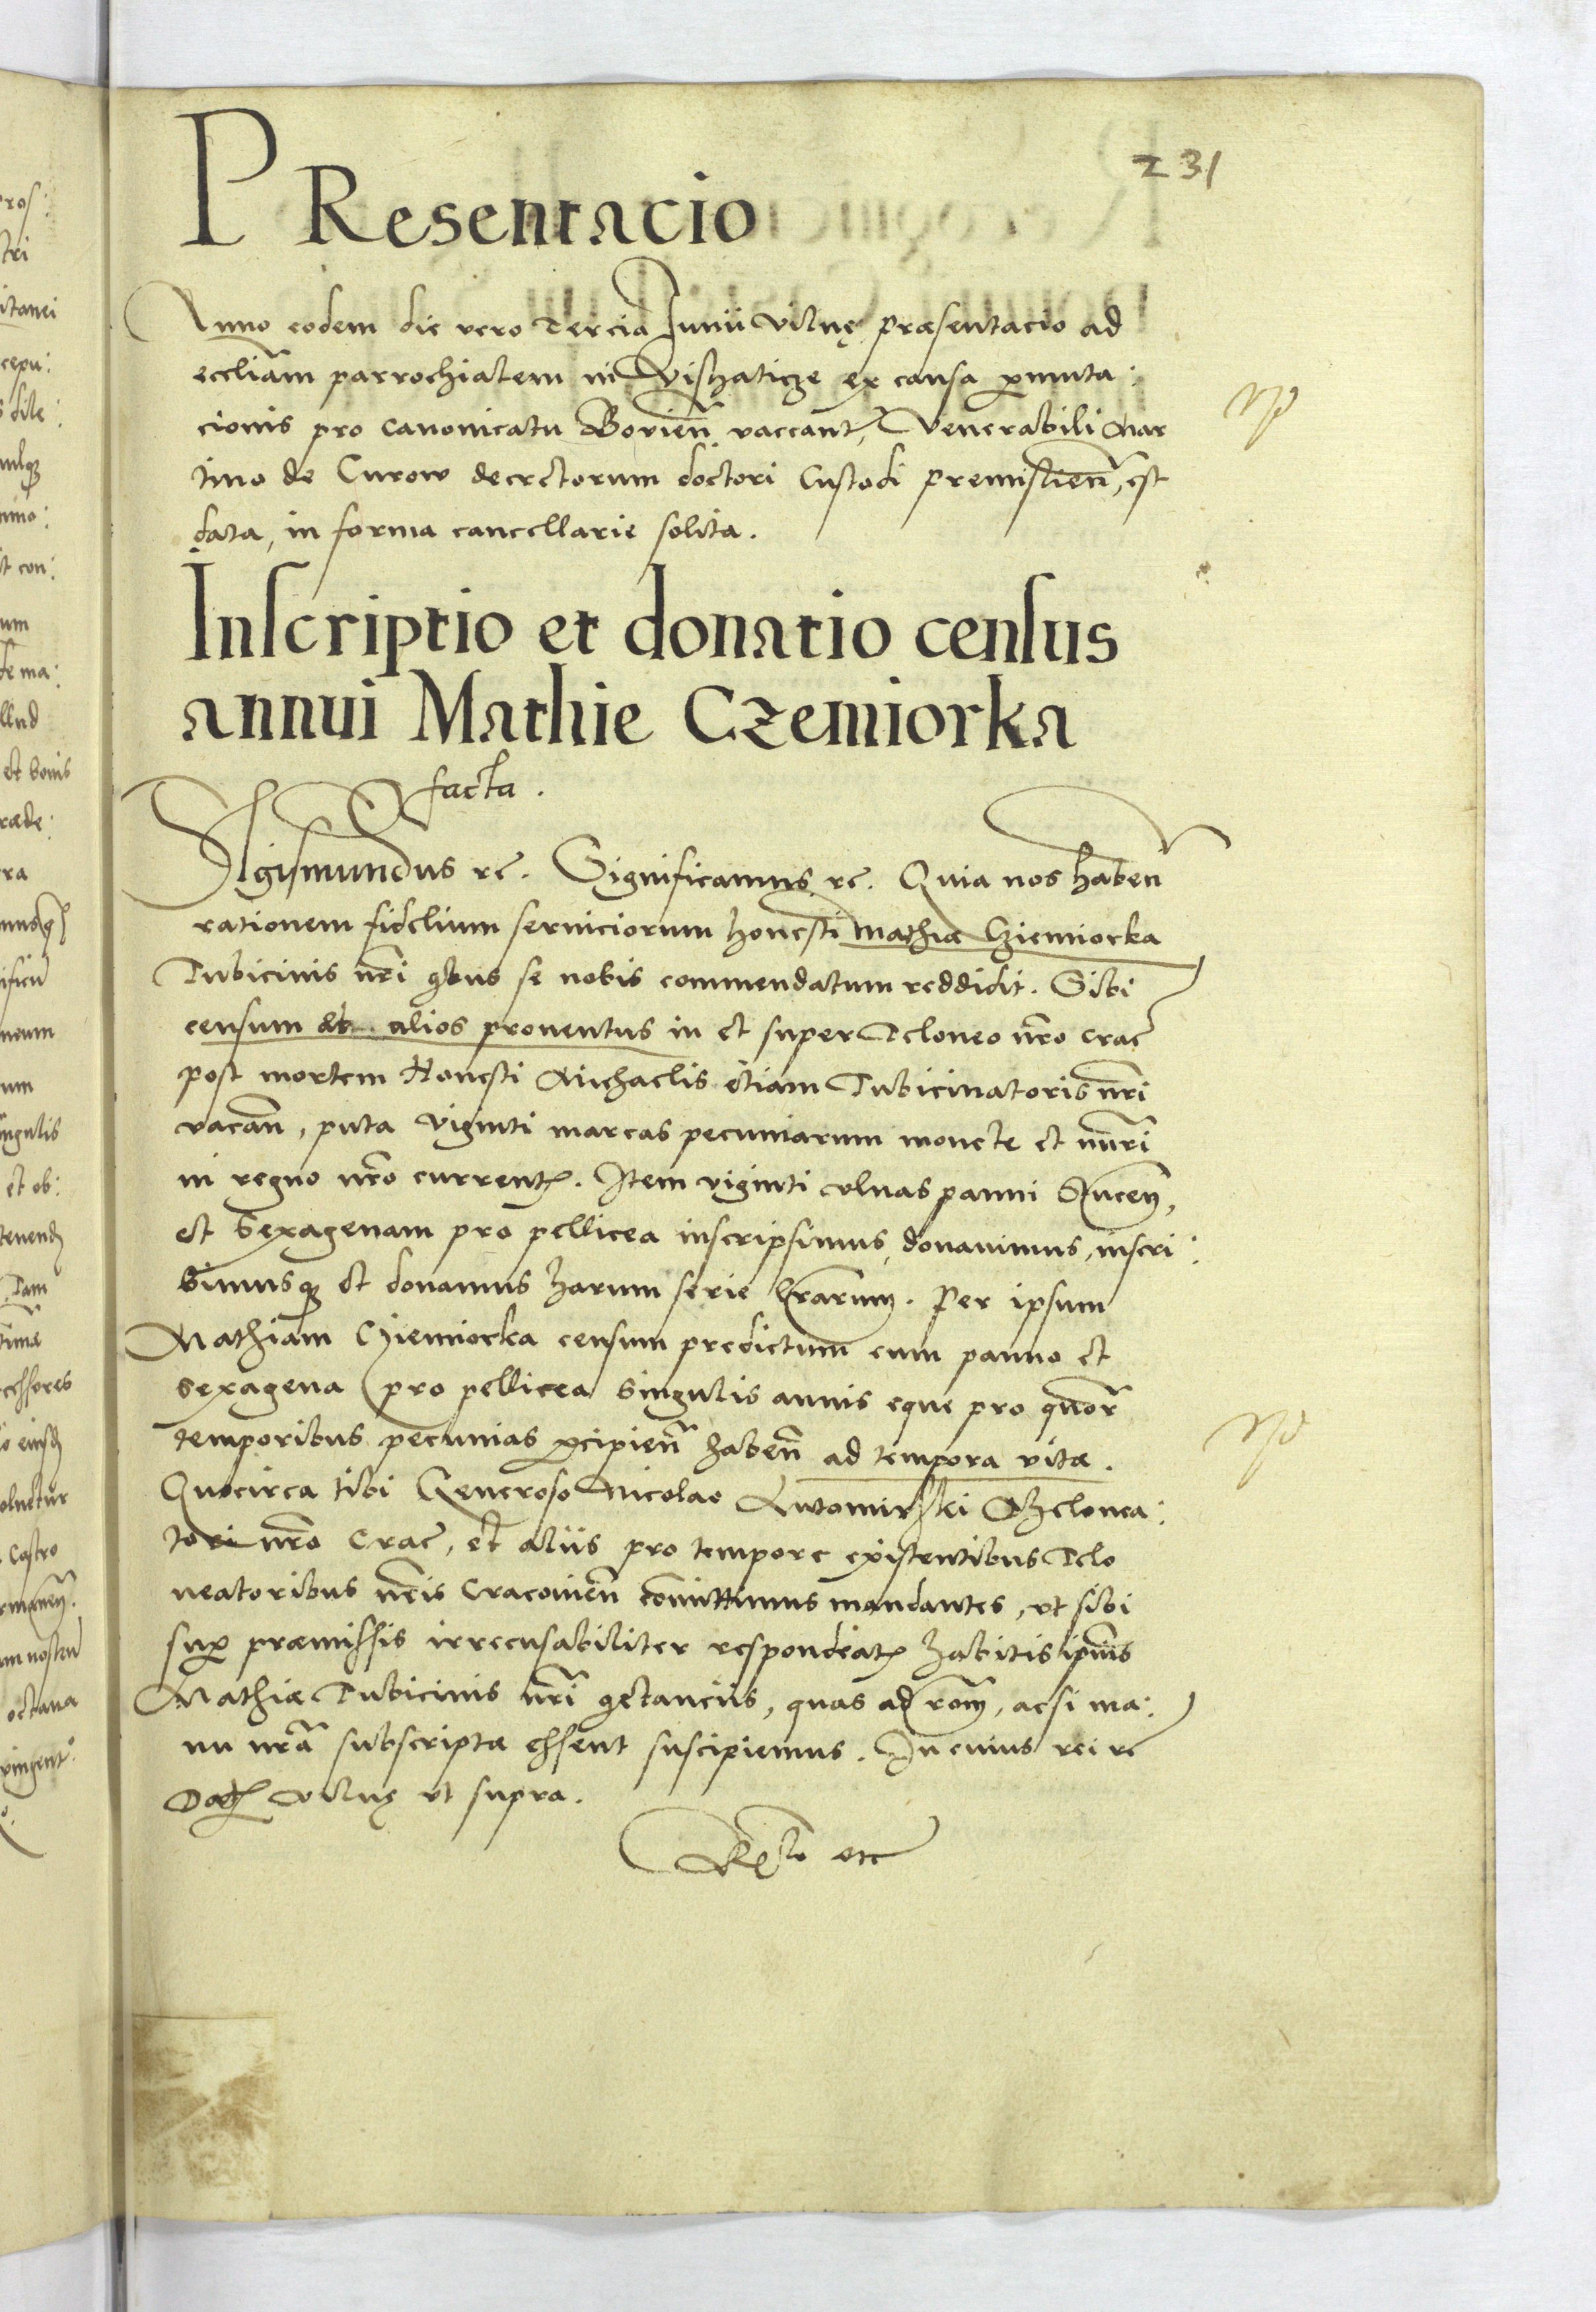 231
PResentacio
Anno eodem die vero Tercia Junii Vilnę praesentacio ad
eccliam parrochialem in Vissaticze ex causa permuta:
cionis pro canonicatu vaccant, Venerabili Mar
tino de Curow decretorum doctori Custodi Premislien, est
data, in forma cancellarie solita.
Inscriptio et donatio census
annui Mathie Czemiorka
facta.
Sigismundus rc. Significamus rc. Quia nos haben
rationem fidelium serviciorum honesti Mathiae Cziemiorka
Tubicinis nri quibus se nobis commendatum reddidit. Sibi
censum alios proventus in et super Teloneo nro Crac
post mortem Honesti Michaelis etiam Tubicinatoris nri
vacan, puta viginti marcas pecuniarum monete et nuri
in regno nro currentem. Item viginti ulnas panni
et sexagenam pro pellicea inscripsimus, donavimus, inscri:
bimusque et donamus harum serie lrarum. Per ipsum
Mathiam Cziemiorka censum predictum cum panno et
sexagena pro pellicea singulis annis eque pro quor
temporibus pecunias percipien haben ad tempora vitae.
Quocirca tibi Generoso Nicolao Lutomirski Theslonea:
tori nro Crac, et aliis pro tempore existentibus Telo
neatoribus nris Cracovien committimus mandantes, ut sibi
super praemissis irrecusabiliter respondeatis habitis ipius
Mathiae Tubicinis nri quictanciis, quas ad rom, acsi ma:
nu nra subscriptae essent suscipiemus. In cuius rei rc
Datum Vilnę ut supra.
Rela etc